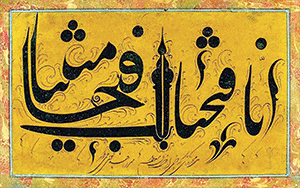 انا فتحنا لک فتحا مبینا